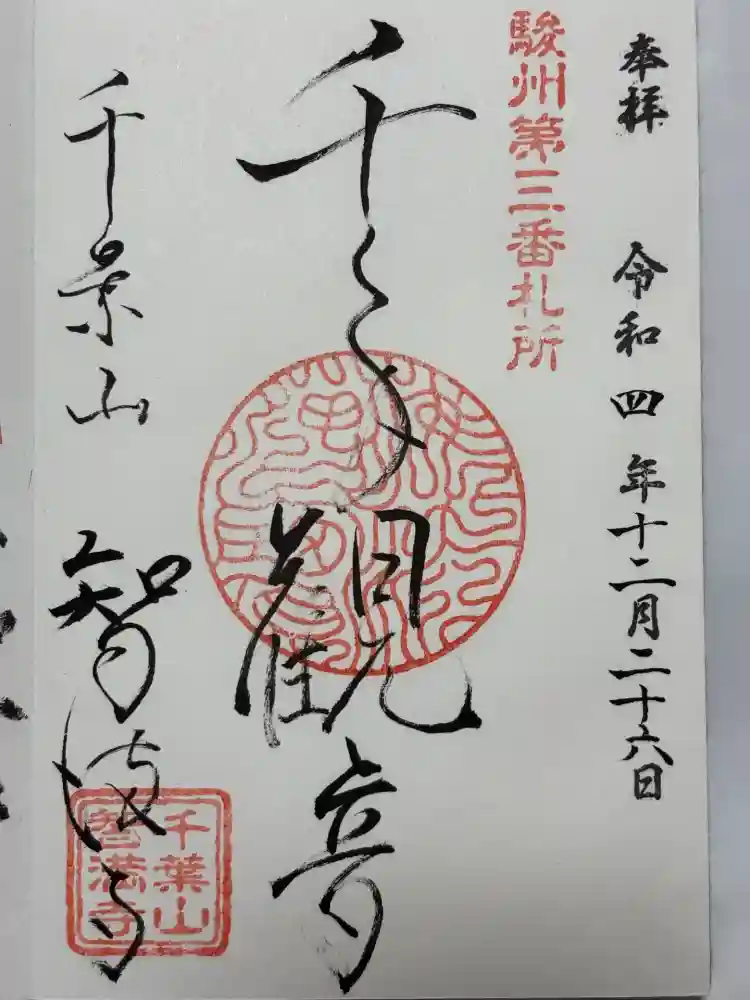 奉拝 令和四年十二月二十六日
駿州第三番札所
千手観音
千葉山 智満寺
千葉山
智満寺